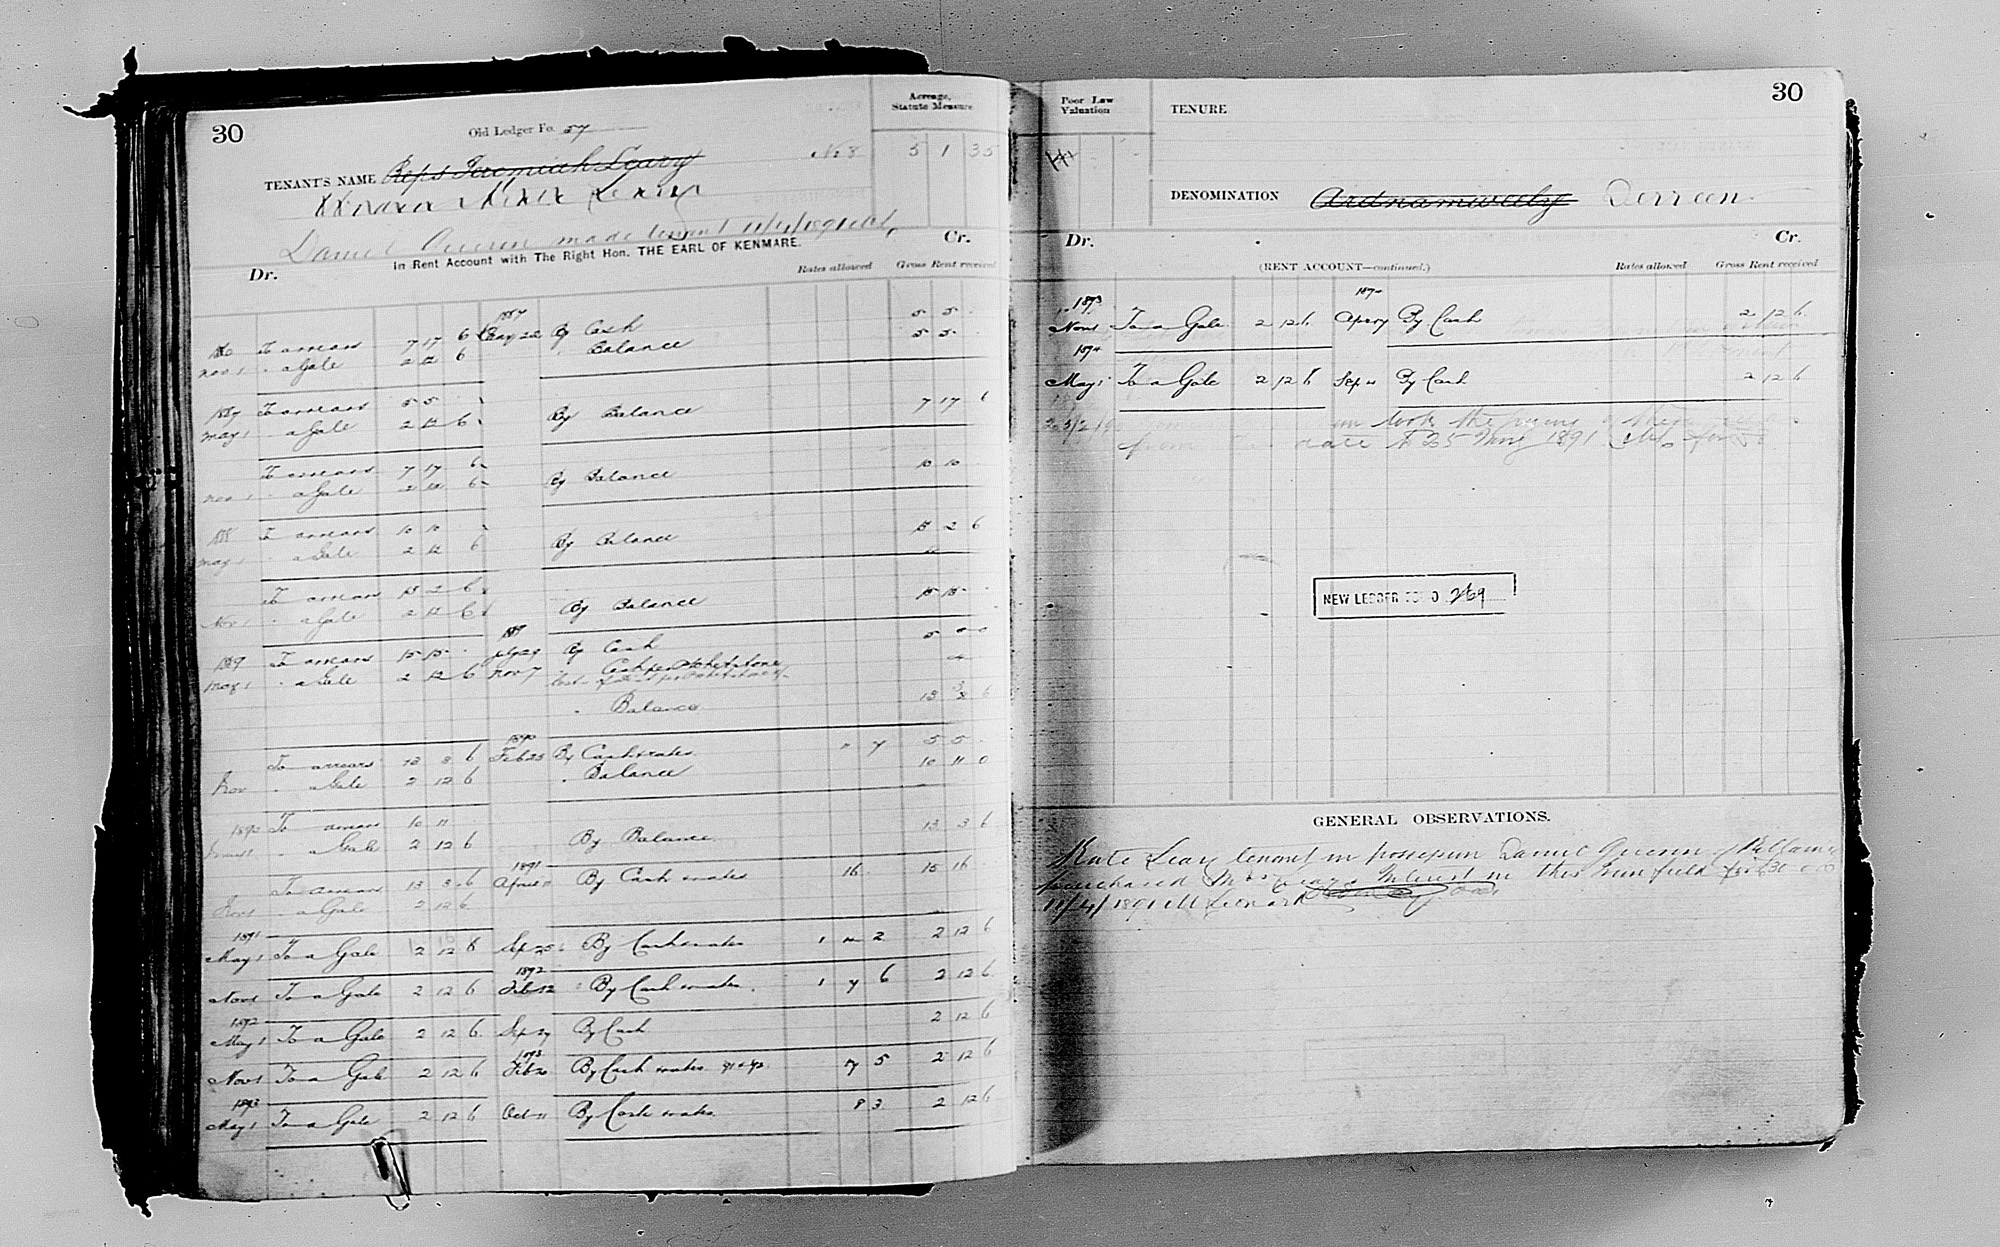 30
Old Ledger Fo. 57
Acreage,
Statute Measure
TENANT'S NAME Reps Jeremiah Leary
No 8 5 1 35
Leary
Daniel made tenant 11/4/1891
in Rent Account with The Right Hon. THE EARL OF KENMARE.
Dr. Cr.
Rates allowed Gross Rent received
1887
To arrears 7 17 6 May 22 By Cash 5 5
Nov 1 " a Gale 2 12 6 " Balance 5 5
1887 To arrears 5 5
May 1 " a Gale 2 12 6 By Balance 7 17 6
To arrears 7 17 6
Nov 1 " a Gale 2 12 6 By Balance 10 10
1888 To arrears 10 10
May 1 " a Gale 2 12 6 By Balance 13 2 6
To arrears 13 2 6
Nov 1 " a Gale 2 12 6 By Balance 15 15
1889
1889 To arrears 15 15 By Cash 5 0 0
May 1 " a Gale 2 12 6 Nov 7 Cash per
" Balance 13 6
1890
To arrears 13 3 6 Feb 25 By Cash & rates " 7 5 5
Nov " a Gale 2 12 6 " Balance 10 11 0
1890 To arrears 10 11
" a Gale 2 12 6 By Balance 13 3 6
1891
To arrears 13 3 6 April 11 By Cash & rates 16 15 16
Nov 1 " a Gale 2 12 6
1891
May 1 To a Gale 2 12 6 Sep 25 By Cash & rates 1 2 2 12 6
1892
Nov 1 To a Gale 2 12 6 Feb 12 By Cash & rates 1 7 6 2 12 6
1892
May 1 To a Gale 2 12 6 Sep 27 By Cash 2 12 6
1893
Nov 1 To a Gale 2 12 6 Feb 20 By Cash & rates 91 & 92 7 5 2 12 6
1893
May 1 To a Gale 2 12 6 Oct 11 By Cash & rates 8 3 2 12 6
30
Poor Law
Valuation
TENURE
DENOMINATION Ardnamweely Derreen
Dr. Cr.
(RENT ACCOUNT—continued.)
Rates allowed Gross Rent received
1893 1894
Nov 1 To a Gale 2 12 6 By Cash 2 12 6
1894
May 1 To a Gale 2 12 6 Sep 11 By Cash 2 12 6
took the
from date to 25 1891
NEW LEDGER FOLIO 269
GENERAL OBSERVATIONS.
Kate Leary tenant in possession Daniel
purchased Mrs Leary's Interest in this farm for £30 0 0
11/4/1891 M Leonard